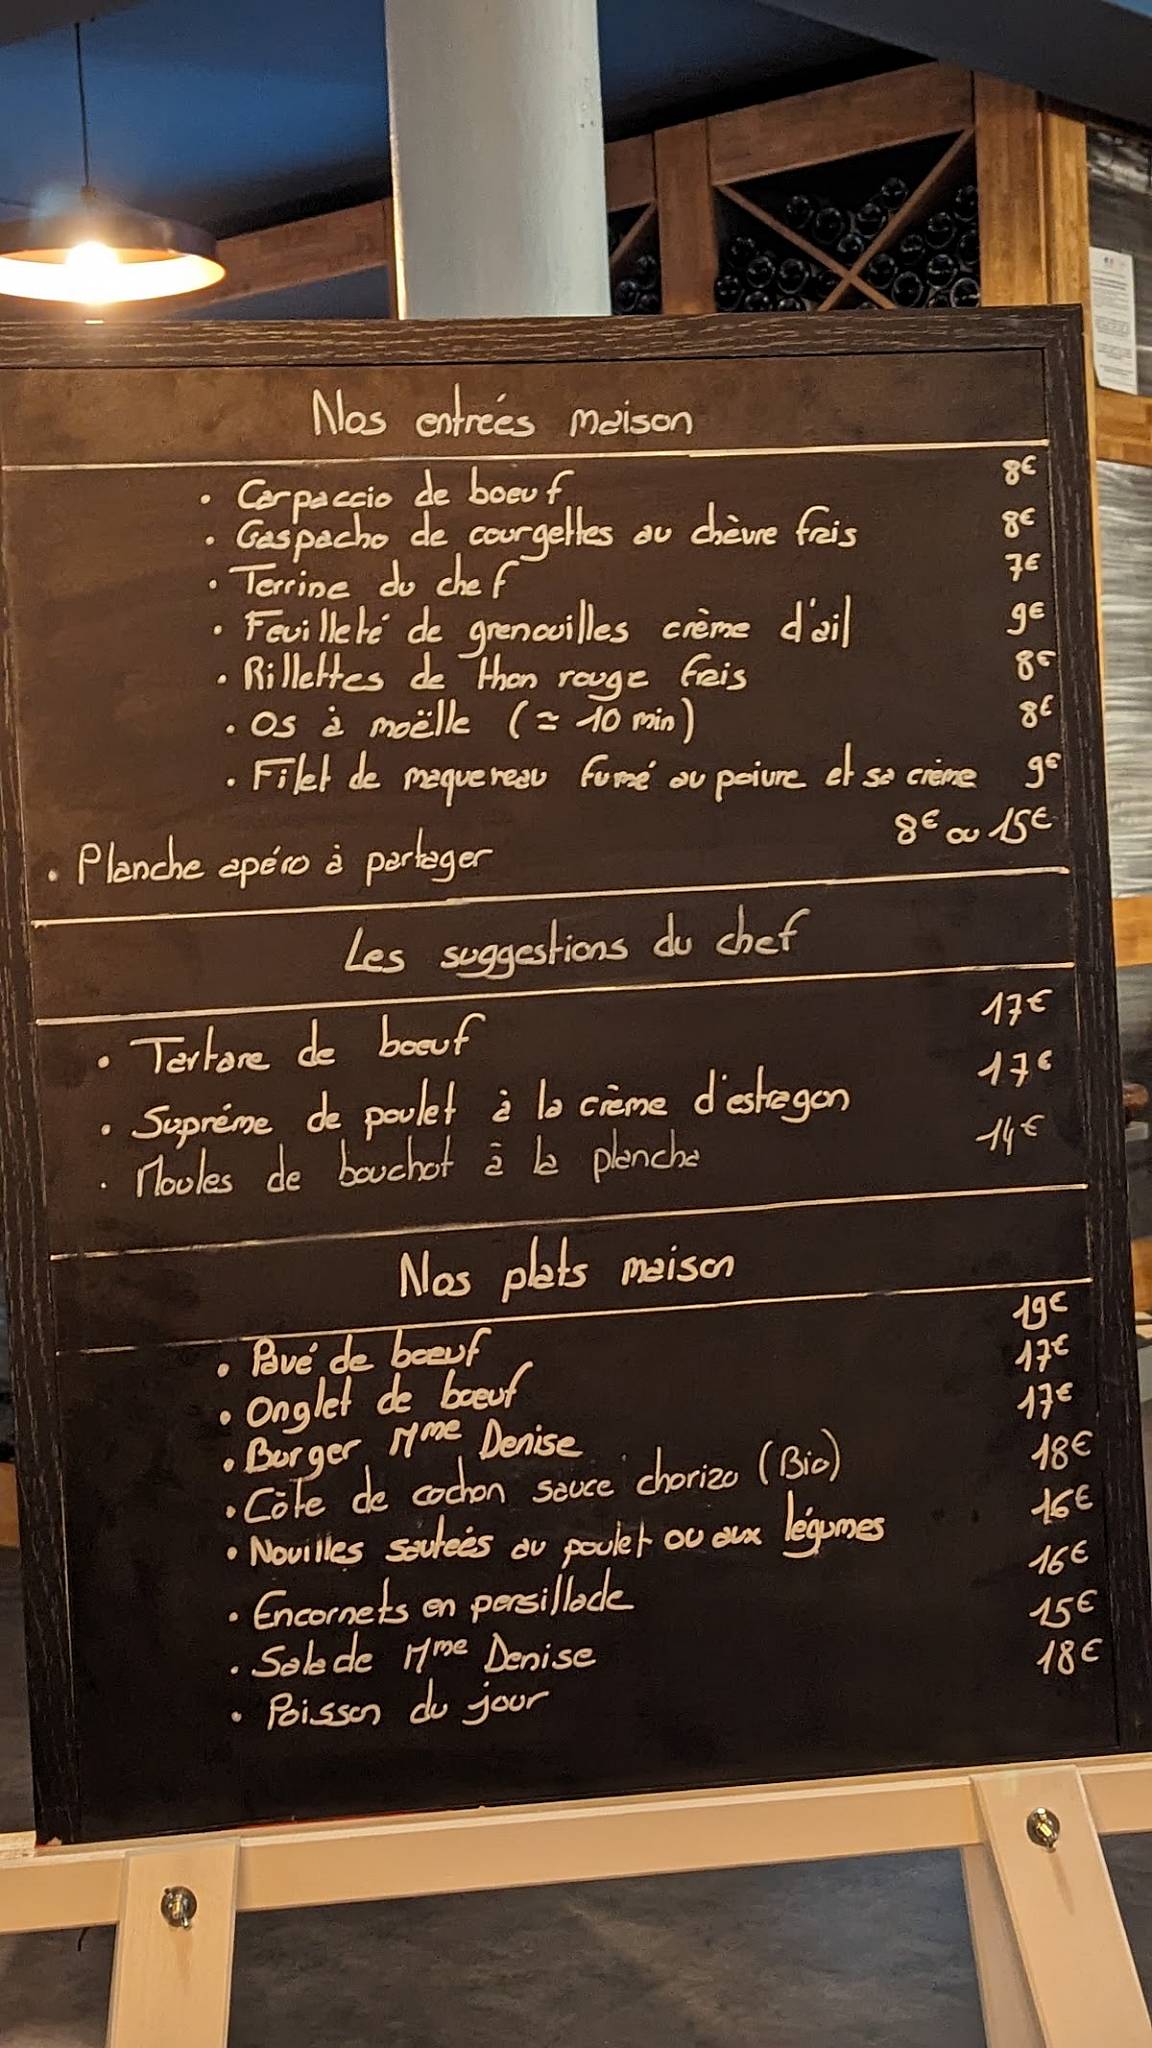 Nos entreés maison
• Carpaccio de boeuf 8€
• Gaspacho de courgettes au chèvre frais 8€
• Terrine du chef 7€
• Feuilleté de grenouilles crème d'ail 9€
• Rillettes de thon rouge frais 8€
• Os à moëlle (≃ 10 min) 8€
• Filet de maquereau fumé au poivre et sa crème 9€
• Planche apéro à partager 8€ ou 15€
Les suggestions du chef
• Tartare de boeuf 17€
• Supréme de poulet à la crème d'estragon 17€
• Moules de bouchot à la plancha 14€
Nos plats maison
• Pavé de boeuf 19€
• Onglet de boeuf 17€
• Burger Mme Denise 17€
• Côte de cochon sauce chorizo (Bio) 18€
• Nouilles sauteés au poulet ou aux légumes 16€
• Encornets en persillade 16€
• Salade Mme Denise 15€
• Poisson du jour 18€